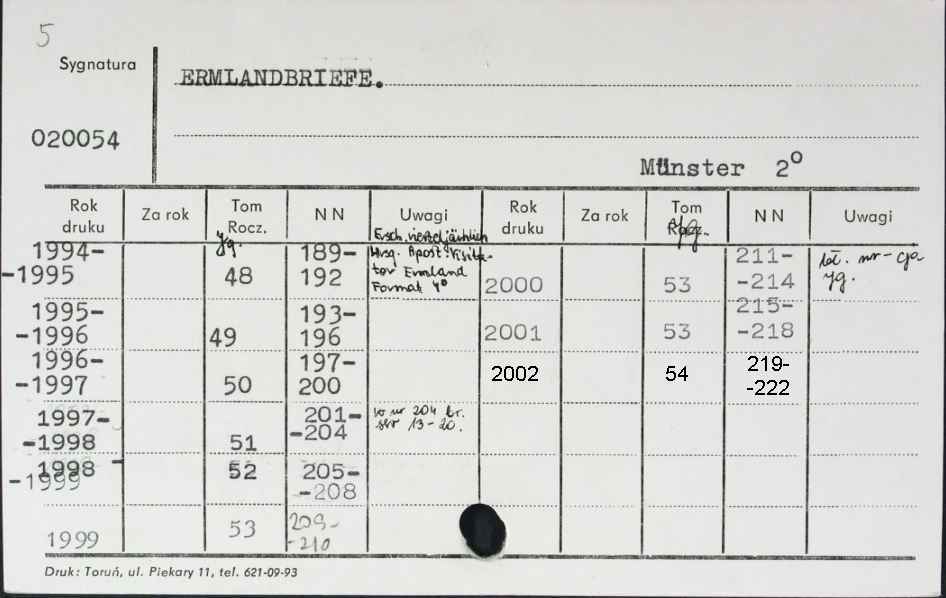 5
Sygnatura
ERMLANDBRIEFE.
020054
Münster 2°
Rok druku Za rok Tom Rocz. NN Uwagi Rok druku Za rok Tom Rocz. NN Uwagi
Jg. Jg.
1994-
-1995 48 189-
192 Ersch. vierteljährlich
Hrsg. Apost. Visita-
tor Ermland
Format 4°
2000 53 211-
-214 nr-cja
Jg.
1995-
-1996 49 193-
196
2001 53 215-
-218
1996-
-1997 50 197-
200
2002 54 219-
-222
1997-
-1998 51 201-
-204 w nr 204
str 13-20.
1998-
-1999 52 205-
-208
1999 53 209-
-210
Druk: Toruń, ul. Piekary 11, tel. 621-09-93